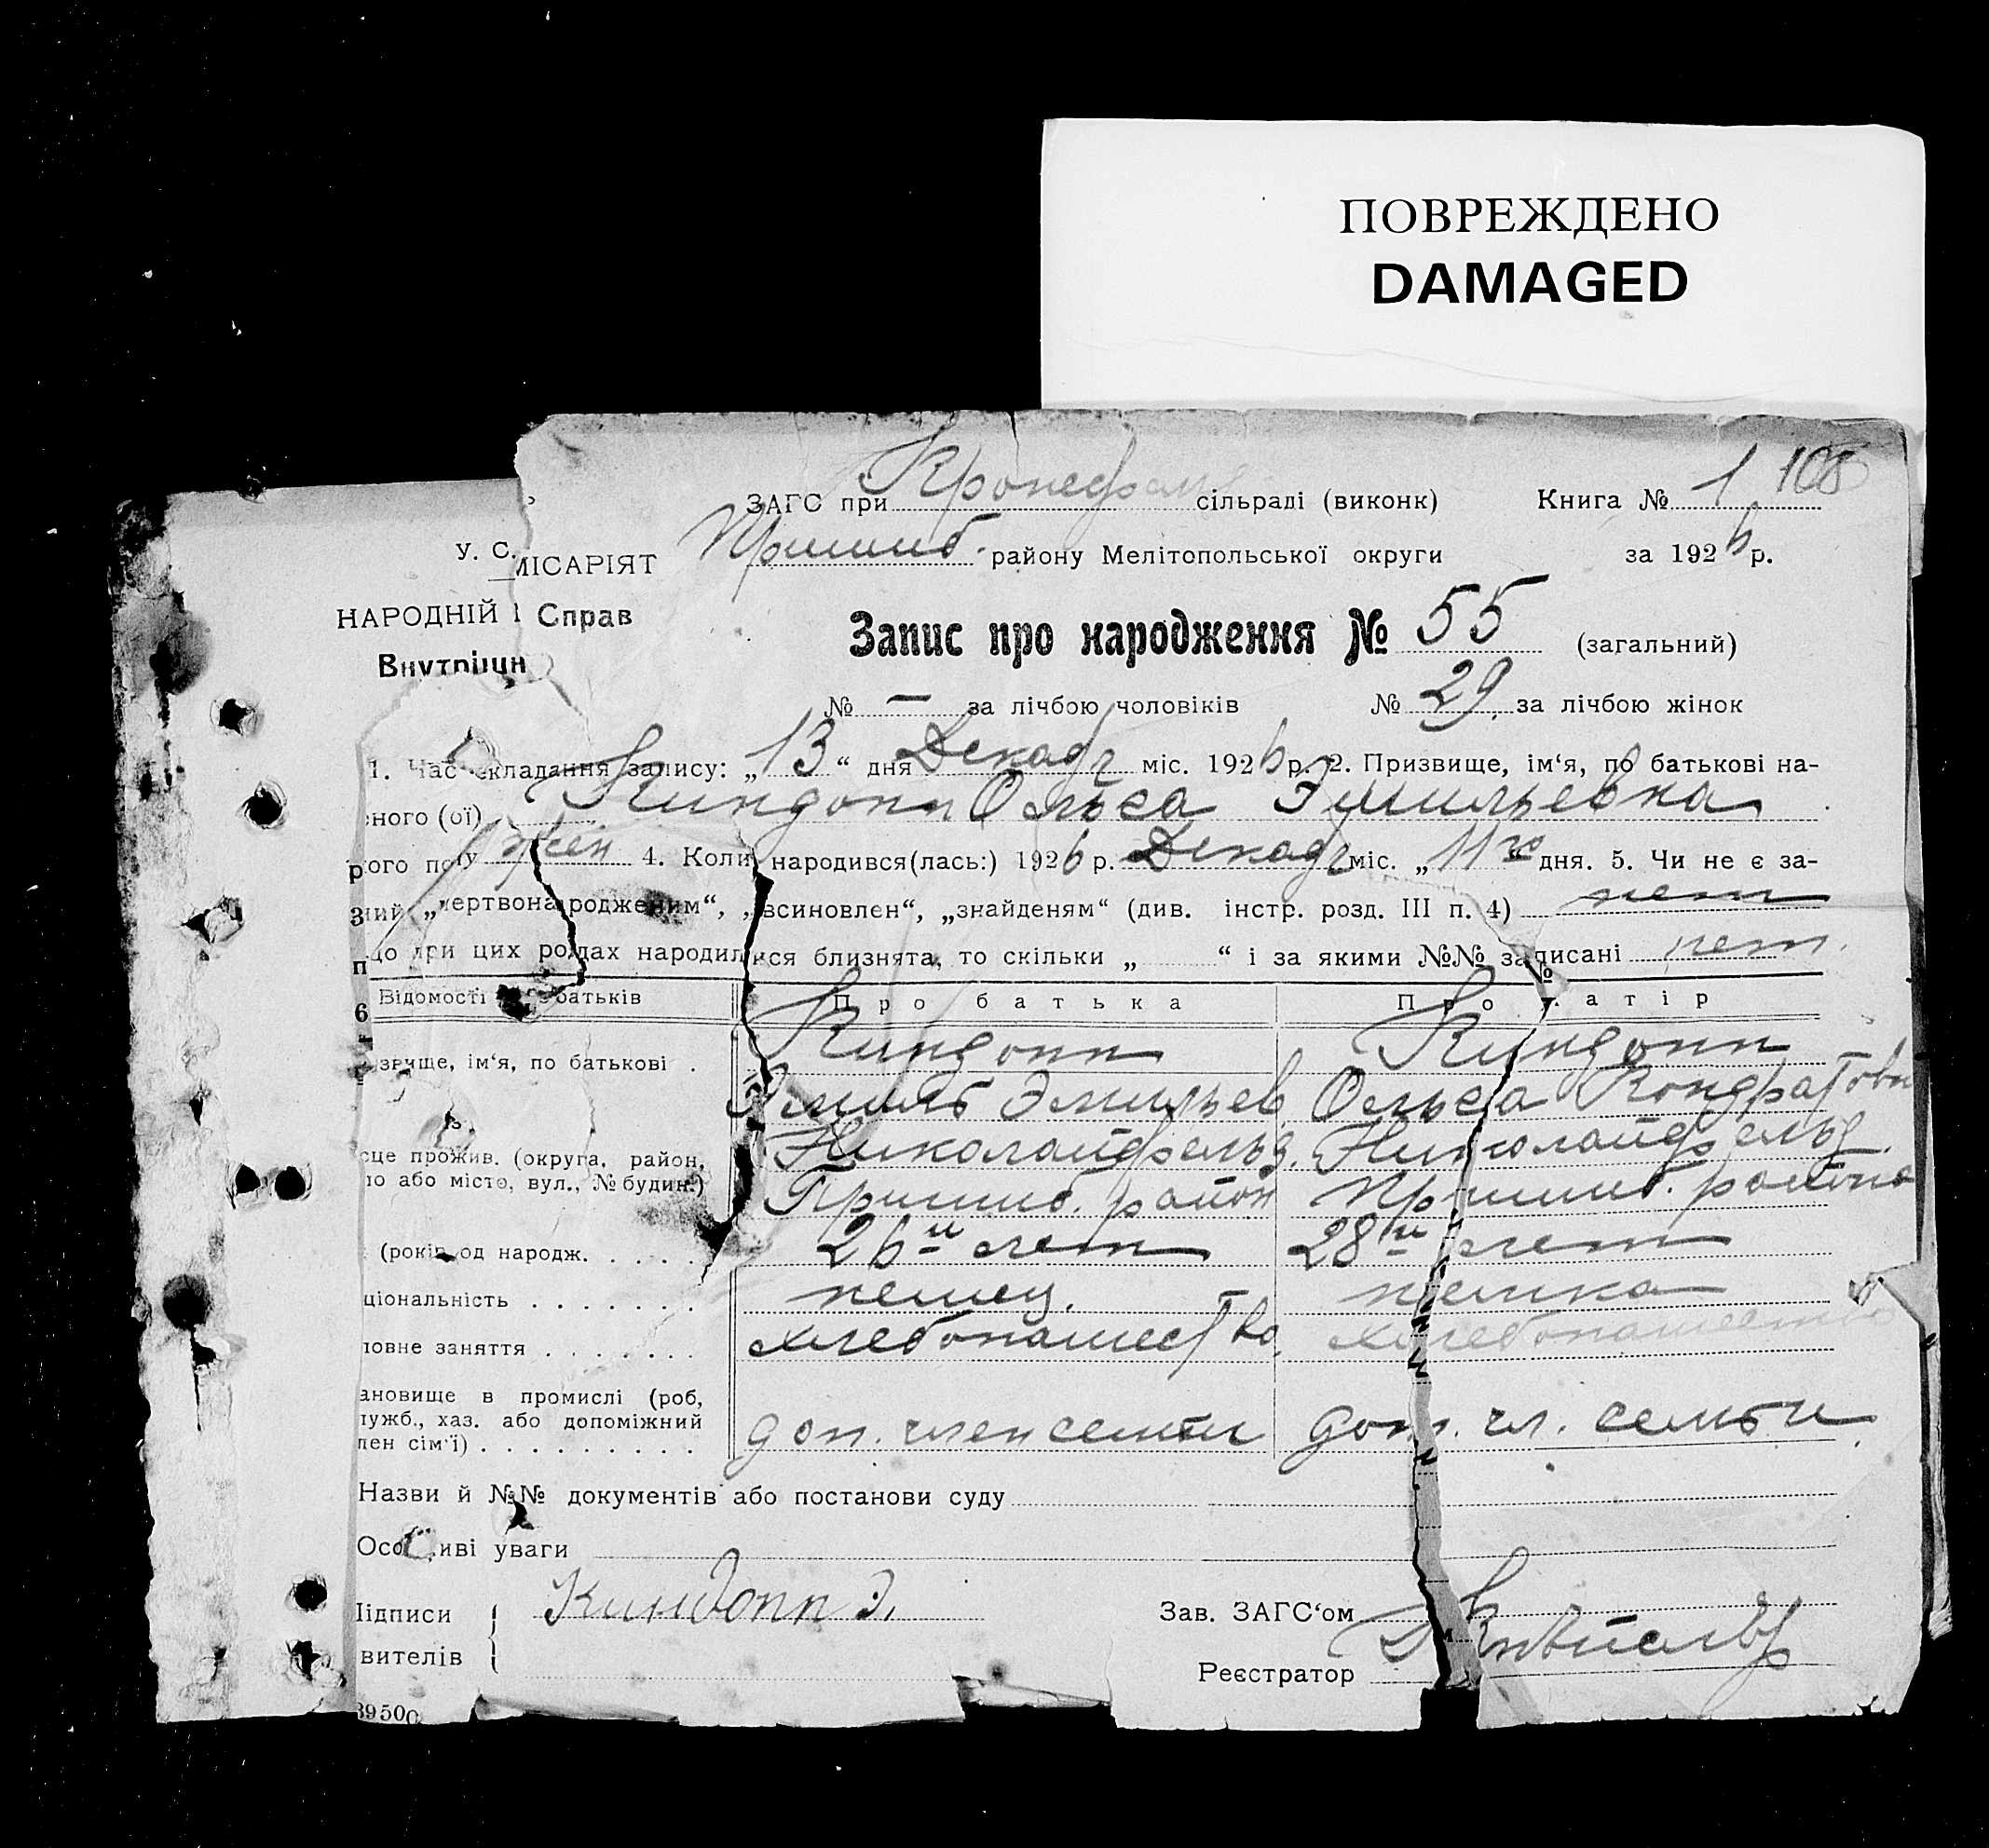 ПОВРЕЖДЕНО
DAMAGED
108
ЗАГС при сільраді (виконк) Книга № 1
Пришиб. району Мелітопольської округи за 1926 р.
У. С.
МІСАРІЯТ
НАРОДНІЙ Справ
Внутрішн
Запис про народження № 55 (загальний)
№ — за лічбою чоловіків № 29. за лічбою жінок
1. Час складання запису: „13“ дня Декабр міс. 1926 р. 2. Призвище, ім‘я, по батькові на-
ного (ої) Киндопп Ольга Эмильевна
ого полу жен 4. Коли народився(лась:) 1926 р. Декабр міс. „11го дня. 5. Чи не є за-
ний „мертвонародженим“, „всиновлен“, „знайденям“ (див. інстр. розд. III п. 4) нет
що при цих родах народилися близнята, то скільки „ “ і за якими №№ записані нет.
6
Відомості батьків Про батька Про матір
звище, ім‘я, по батькові . Киндопп Киндопп
Эмиль Эмильев Ольга Кондратовн
сце прожив. (округа, район, Николайфельд. Николайфельд.
ло або місто, вул., № будин.) Пришиб. район Пришиб. района
(років од народж. . . . . 26и лет 28и лет
ціональність . . . . . . . немец. немка
ловне заняття . . . . . . . хлебопашество. хлебопашество
ановище в промислі (роб,
лужб., хаз. або допоміжний
лен сім‘ї) . . . . . . . . . доп. член семьи доп. чл. семьи
Назви й №№ документів або постанови суду
Особливі уваги
Підписи Киндопп Э. Зав. ЗАГС‘ом
вителів Реєстратор
39500